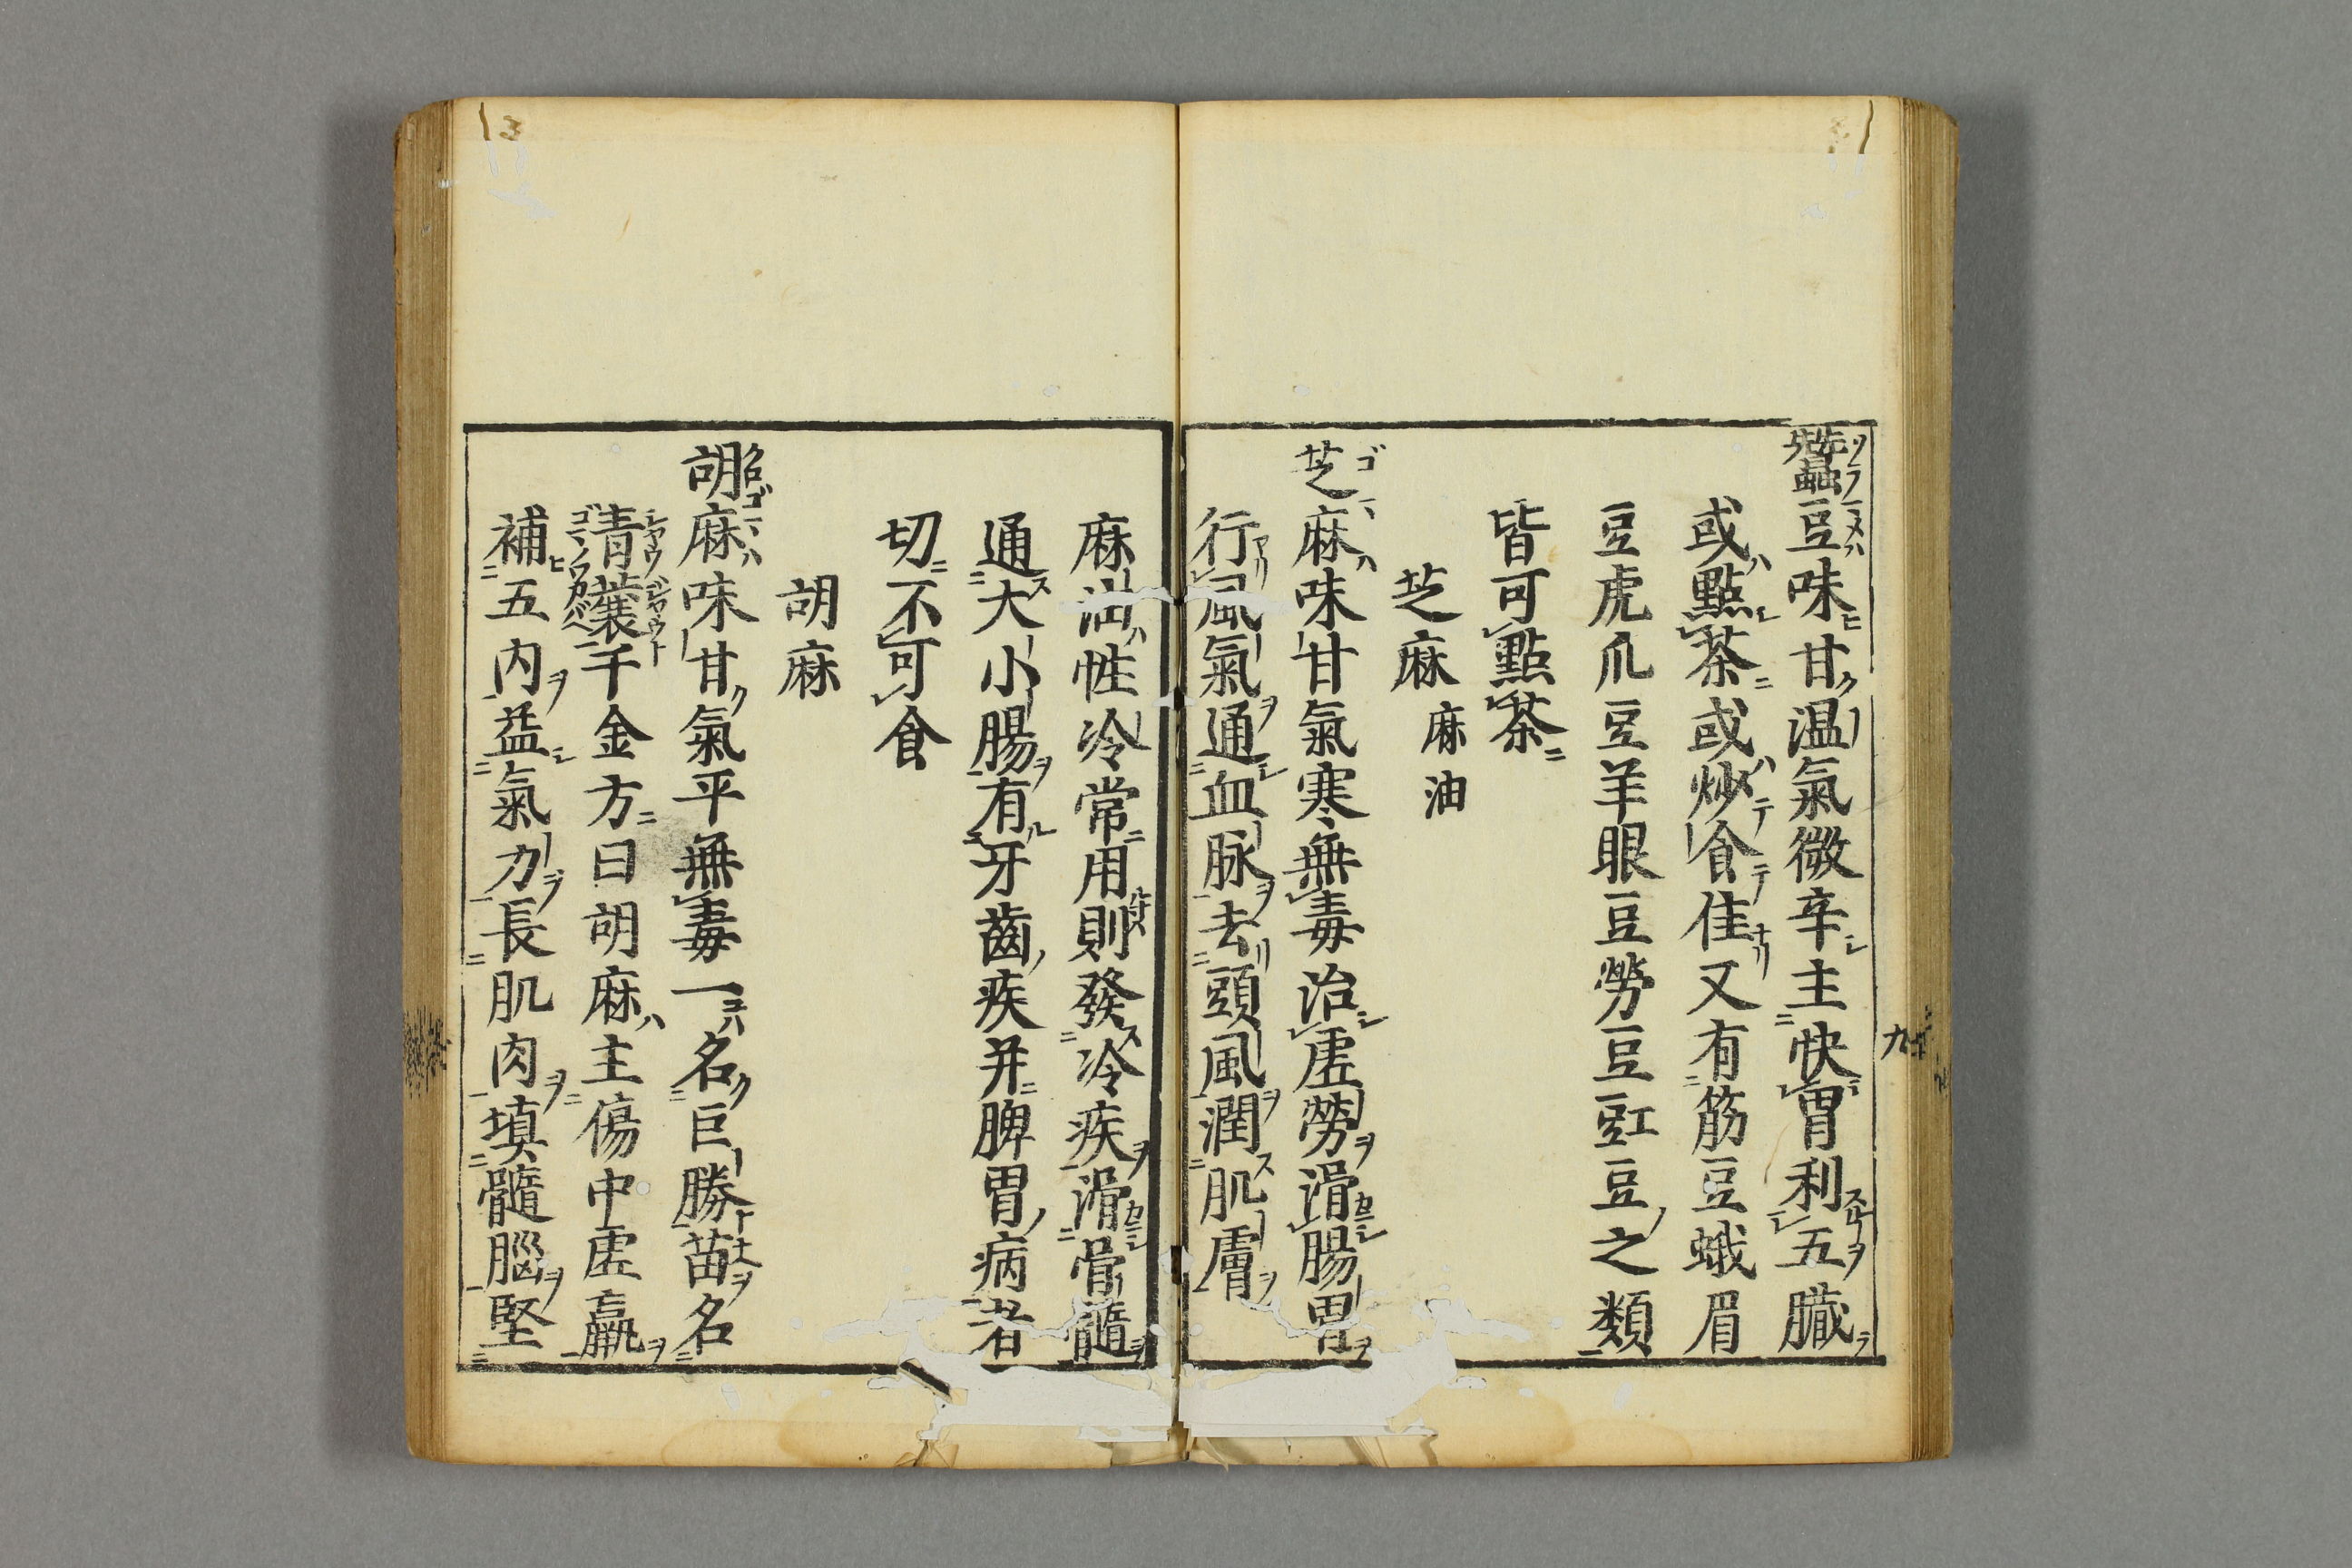 蠶豆味甘温氣微辛主快胃利五臓
或點茶或炒食佳又有筋豆蛾眉
豆虎爪豆羊眼豆勞豆豇豆之類
皆可點茶
芝麻 麻油
芝麻味甘氣寒無毒治虚勞滑腸胃
行風氣通血脉去頭風潤肌膚
麻油性冷常用則發冷疾滑骨髓
通大小腸有牙齒疾并脾胃病者
切不可食
胡麻
胡麻味甘氣平無毒一名巨勝苗名
青蘘千金方曰胡麻主傷中虚羸
補五内益氣力長肌肉填髓腦堅